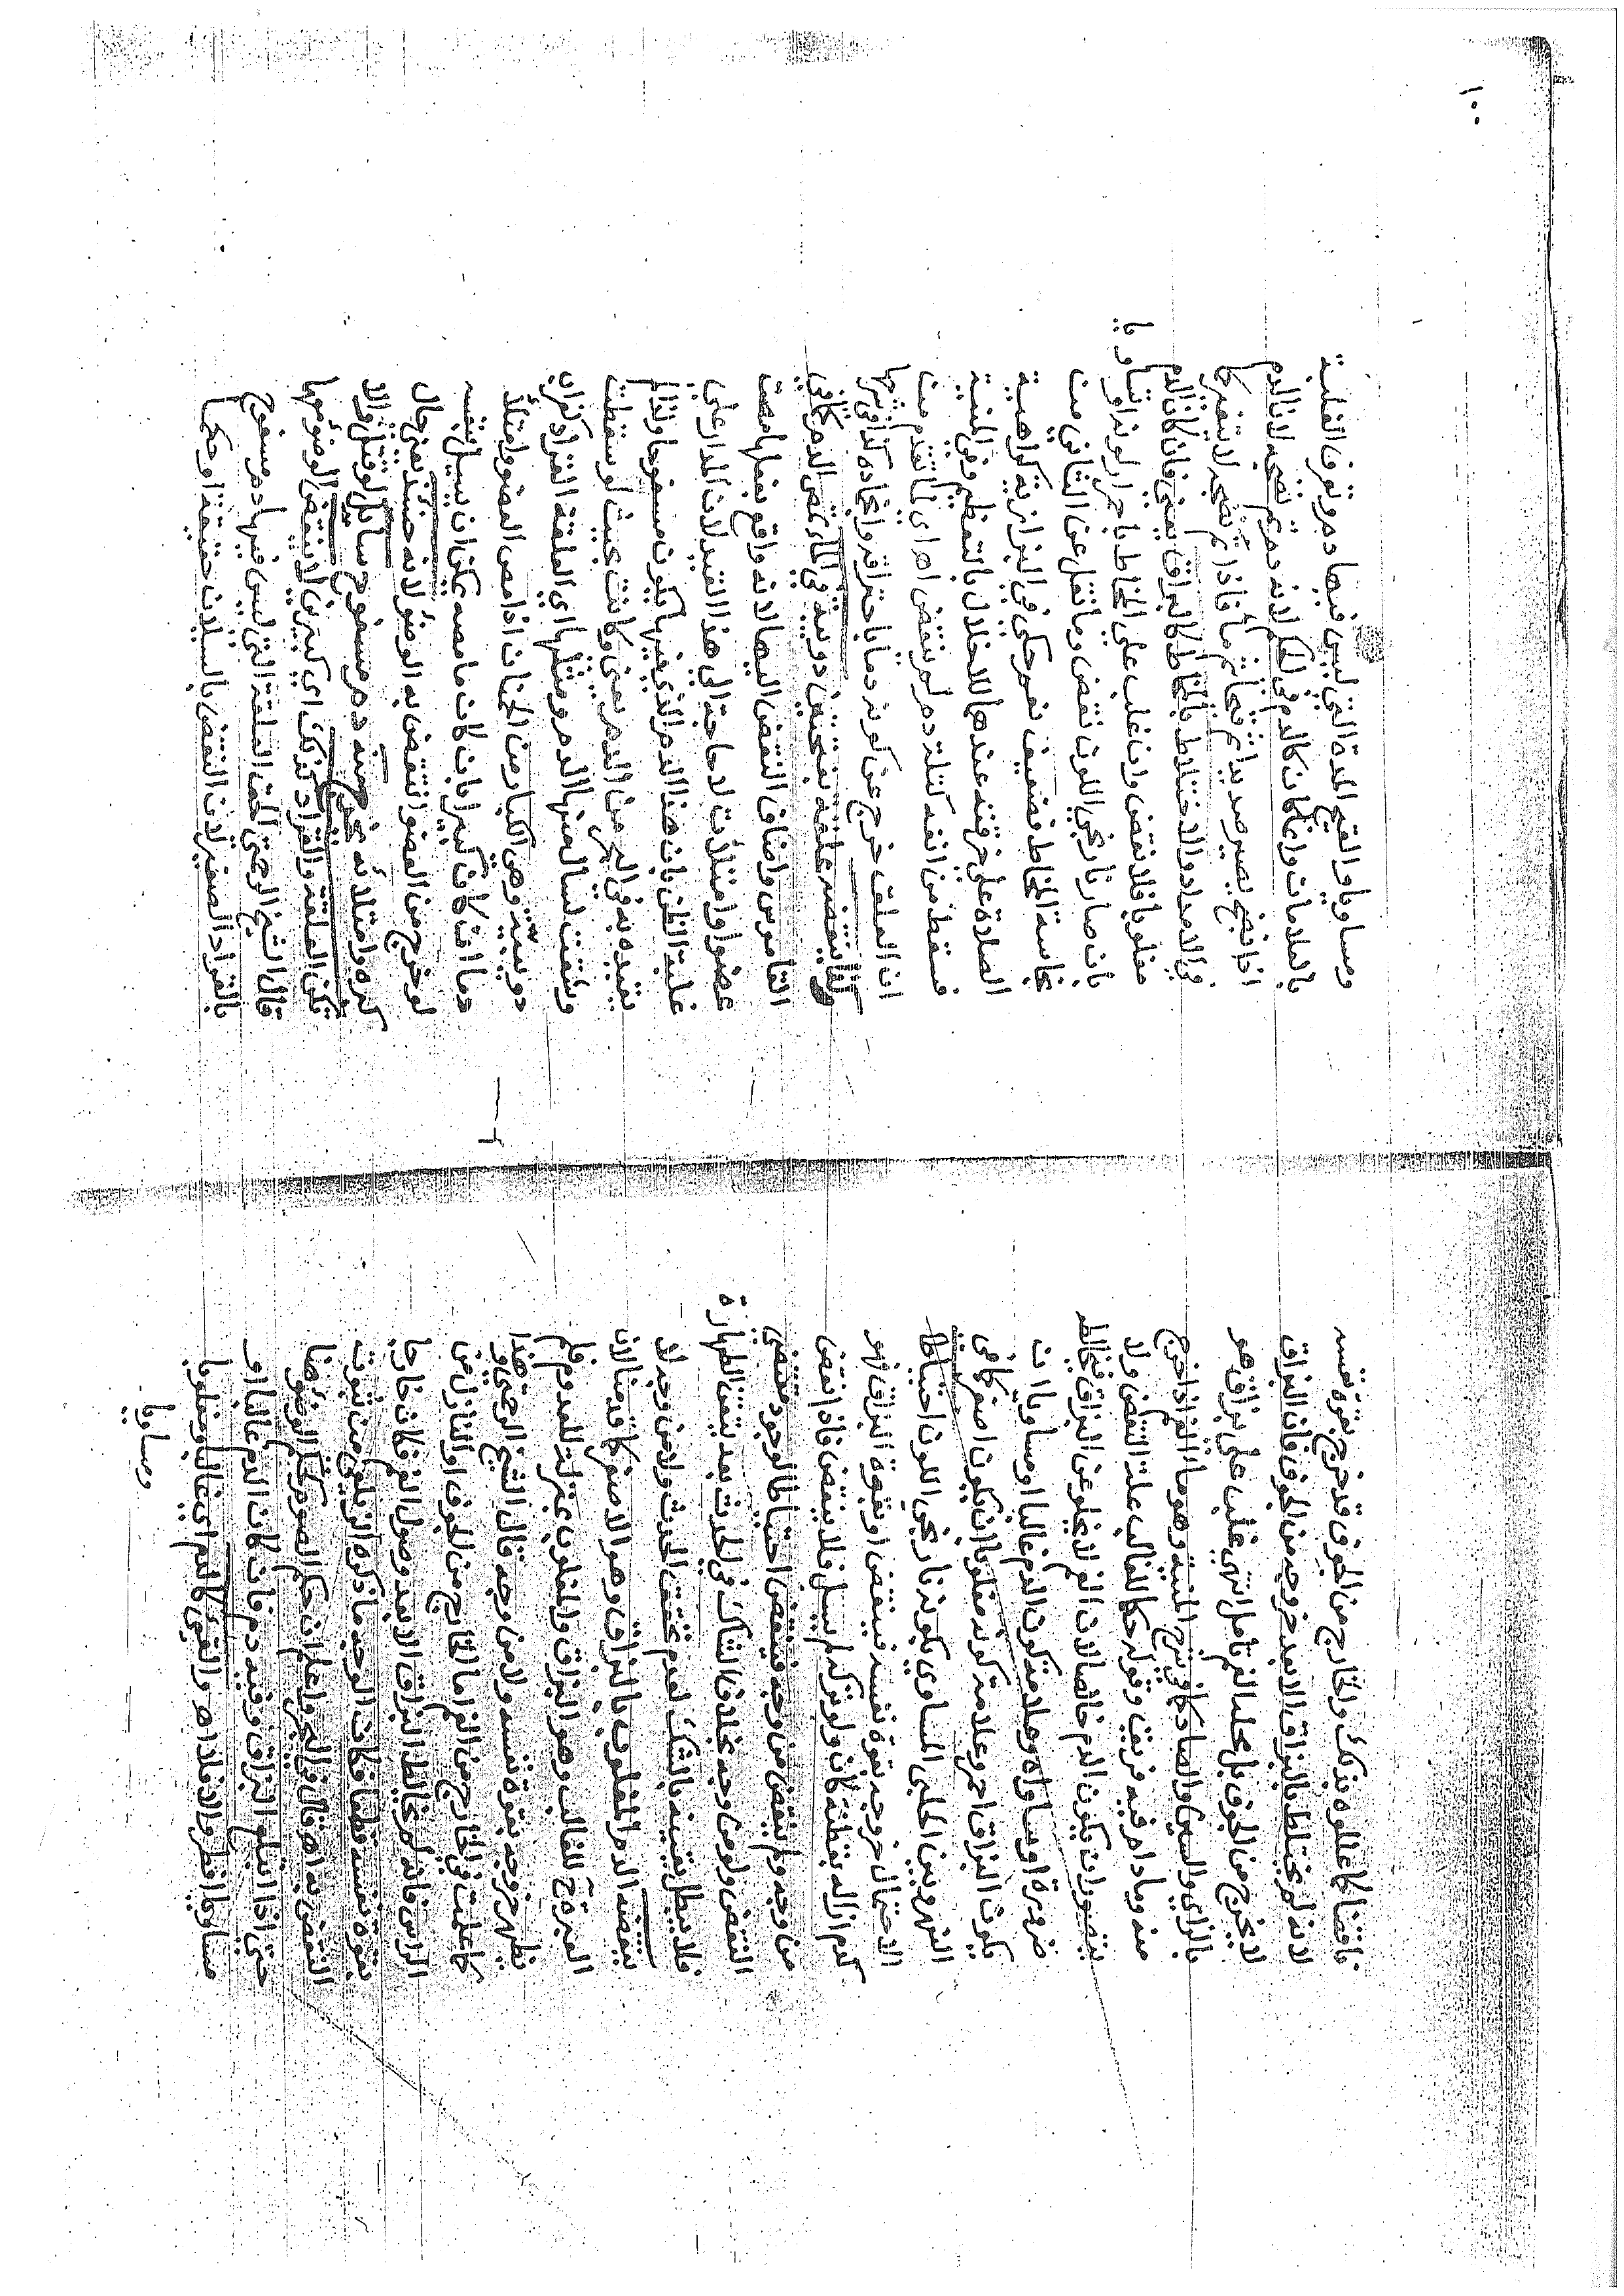 ناقضا كما عللوه بذلك والخارج من الجوف قد خرج بقوة نفسه
لانه لم يختلط بالبزاق الا بعد خروجه من الجوف فان البزاق
لا يخرج من الجوف بل محله الفم تامل انتهى غلب على بزاق هو
بالزاي والسين والصاد كما في شرح المنية وهو ماء الفم اذا خرج
منه وما دام فيه فريق وقوله حكما للغالب علة النقض ولا
يتصور ان يكون الدم خالصا لان الفم لا يخلو عن البزاق فيخالط
ضرورة او ساواه وعلامة كون الدم غالبا او مساويا ان
يكون البزاق احمر وعلامة كونه مغلوبا ان يكون اصفر كما في
النهر وبين الحلبي المساوي بكونه نارنجي اللون احتياطا
الاحتمال خروجه بقوة نفسه فينقض او بقوة البزاق فهو
كدم ازاله بقطنة كان ولو تركه لم يسل فلا ينقض فاذا نقض
من وجه ولم ينقض من وجه فينقض احتياطا لوجود مقتضى
النقض ولو من وجه بخلاف الشاك في الحدث بعد تيقن الطهارة
فلا يبطل يقينه بالشك لعدم تحقق الحدث ولا من وجه لا
ينقضه الدم المغلوب بالبزاق وهو الاصفر كما قدمنا لان
العبرة ح للغالب وهو البزاق والمغلوب بمنزلة المعدوم فلم
يظهر خروجه بقوة نفسه ولا من وجه قال الشيخ الرحمتي وهذا
كما علمت في الخارج من الفم اما الخارج من الجوف او النازل من
الراس فانه لم يخالط البزاق الا بعد وصول الفم فكان خارجا
بقوة نفسه قطعا فكان الوجه ما ذكره الزيلعي من ثبوت
النقض به اه قال في البحر واعلم ان حكم الصوم كحكم الوضوء هنا
حتى اذا ابتلع البزاق وفيه دم فان كان الدم غالبا او
مساويا فطر والا فلا اه والقيح كالدم اي غالبا ومغلوبا
ومساويا
١٠٠
ومساويا والقيح المدة التي ليس فيها دم وتعرف الغلبة
بالعلامات وانما كان كالدم في الحكم لانه دم تم نضجه لان الدم
اذا نضج يصير صديدا ثم قيحا ثم ماء فاذا تم نضجه لا يتغير حكمه
في الامداد والاختلاط بالمخاط كالبزاق يعني فان كان الدم
مغلوبا فلا نقض وان غلب على المخاط باحمرار لونه او تساويا
بان صار نارنجي اللون نقض وما نقل عن الثاني من
نجاسة المخاط فضعيف نعم حكى في البزازية كراهية
الصلاة على خرقته عندهما للاخلال بالتعظيم وفي المنية
فسقط من انفه كتلة دم لم ينتقض اه اي لما تقدم من
ان العلق خرج عن كونه دما باحتراقه وانجماده كذا في شرحها
وكذا ينقضه علقة بفتحتين دويبة في الماء تمص الدم كما في
القاموس واضاف النقض اليها لانه واقع بفعلها مصت
عضوا وامتلأت لا حاجة الى هذا القيد لان المدار على
غلبة الظن بان هذا الدم الذي فيها يكون مسفوحا ولذا لم
يقيده به في البحر من الدم يعني وكانت بحيث لو سقطت
وشقت لسال منها الدم ومثلها اي العلقة القراد كغراب
دويبة وهي الكبار من الحنان اذا مص العضو وامتلأ
دما ان كان كبيرا بان كان ما مصه يمكن ان يسيل بنفسه
لو خرج من العضو انتقض به الوضوء لانه حينئذ يعني حال
كبره وامتلائه يخرج منه دم مسفوح سائل لو قتل والا
تكن العلقة والقراد كذلك اي كبيرين لا ينتقض الوضوء بهما
قال الشيخ الرحمتي الحق العلقة التي ليس فيها دم مسفوح
بالقراد الصغير لان النقض بالسيلان حقيقة او حكما